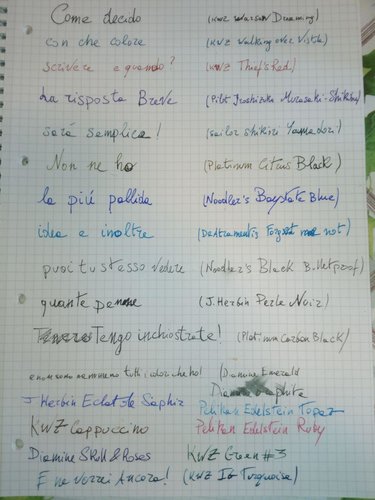 Come decido (KWZ Warsaw Dreaming)
con che colore (KWZ Walking over Vistula)
scrivere e quando? (KWZ Thief's Red)
La risposta Breve (Pilot Iroshizuku Murasaki-Shikibu)
sarà semplice! (Sailor Shikiori Yamadori)
Non ne ho (Platinum Citrus Black)
la più pallida (Noodler's Baystate Blue)
idea e inoltre (DeAtramentis Forget me not)
puoi tu stesso vedere (Noodler's Black B. Metproof)
quante penne (J. Herbin Perle Noir)
Tengo inchiostrate! (Platinum Carbon Black)
e non sono nemmeno tutti i colori che ho! (Diamine Emerald
J Herbin Eclat de Saphir Diamine Graphite
KWZ Cappuccino Pelikan Edelstein Topaz
Pelikan Edelstein Ruby
Diamine Skull & Roses KWZ Green #3
E ne vorrei Ancora! (KWZ IG Turquoise)